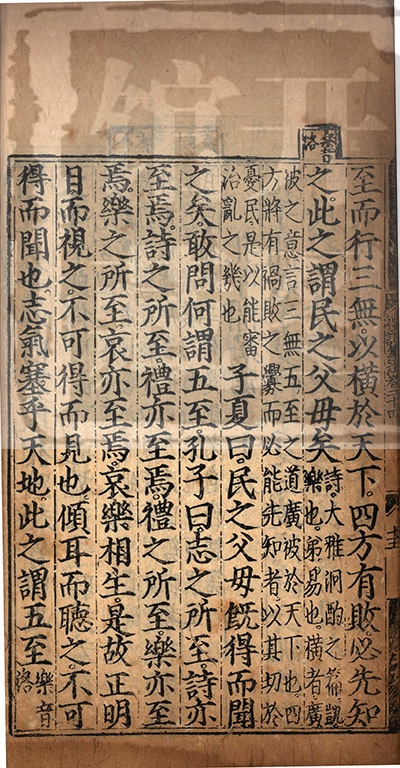 至而行三無以橫於天下四方有敗必先知
之此之謂民之父母矣
詩大雅泂酌之篇凱
樂也弟易也橫者廣
被之意言三無五至之道廣被於天下也四
方將有禍敗之釁而必能先知者以其切於
憂民是以能審
治亂之幾也
子夏曰民之父母旣得而聞
之矣敢問何謂五至孔子曰志之所至詩亦
至焉詩之所至禮亦至焉禮之所至樂亦至
焉樂之所至哀亦至焉哀樂相生是故正明
目而視之不可得而見也傾耳而聽之不可
得而聞也志氣塞乎天地此之謂五至
樂音
洛